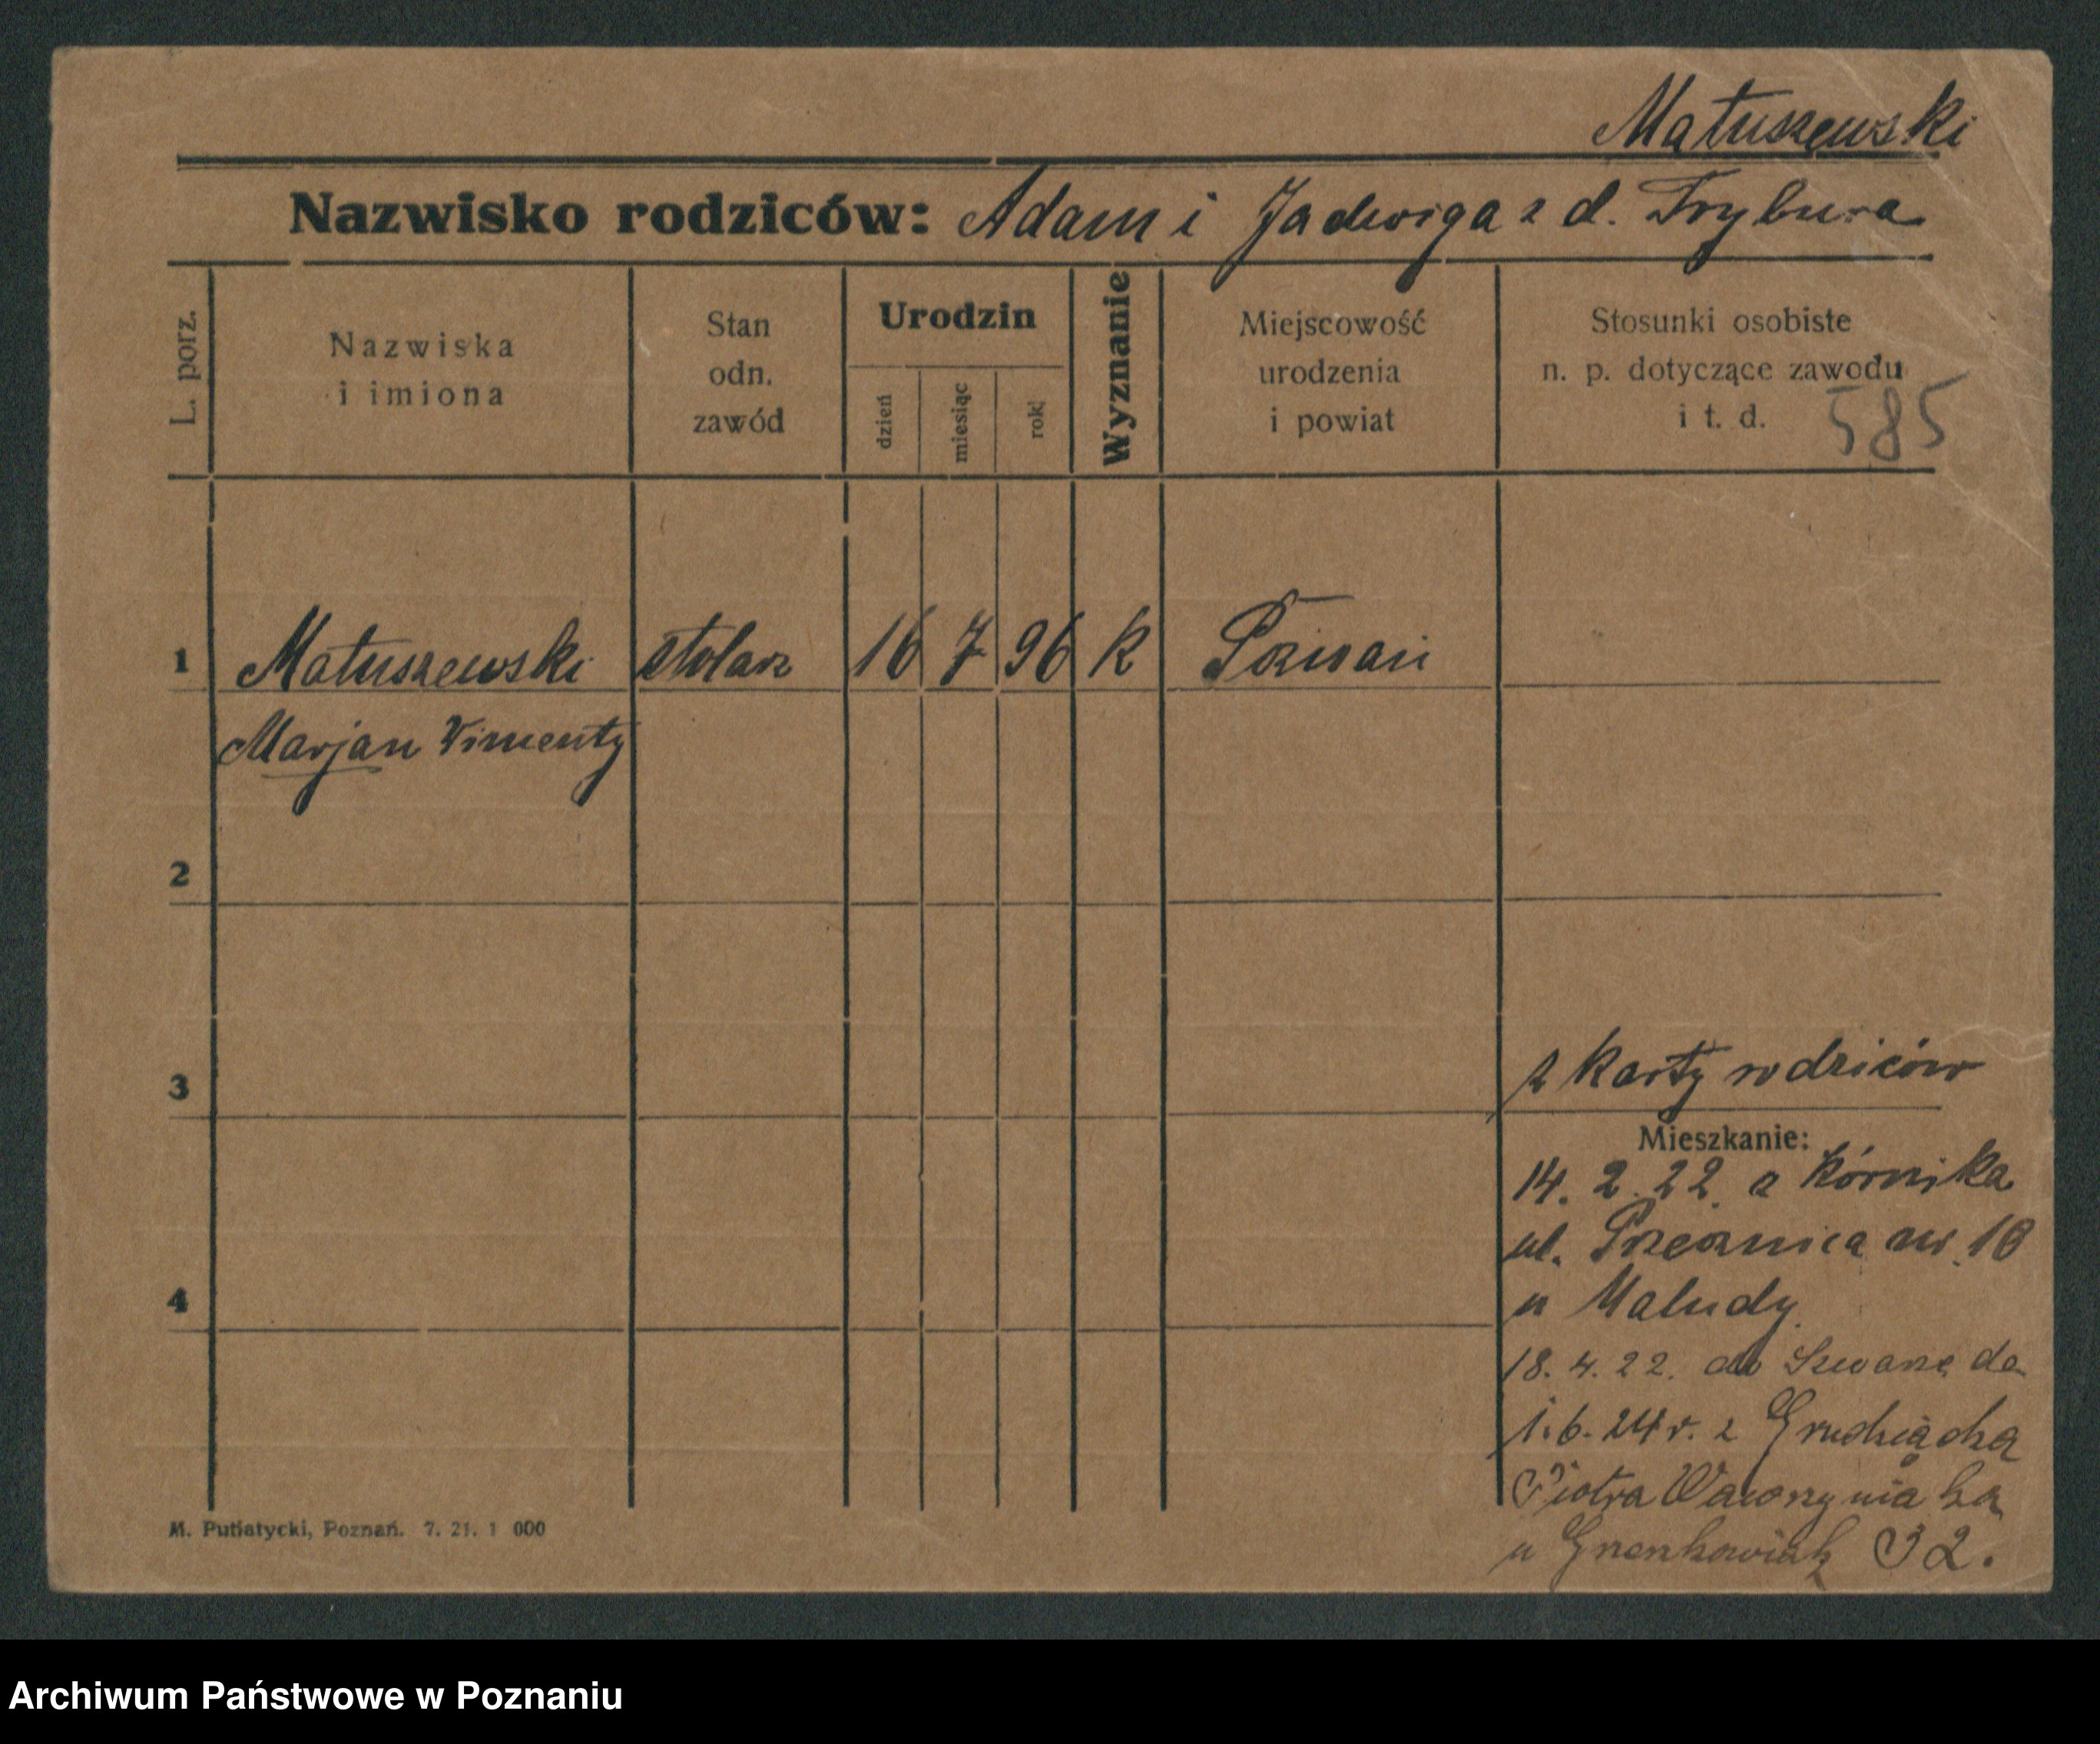 Matuszewski
Nazwisko rodziców: Adam i Jadwiga z d. Trybura
L. porz.
Nazwiska
i imiona
Stan
odn.
zawód
Urodzin
dzień
miesiąc
rok
Wyznanie
Miejscowość
urodzenia
i powiat
Stosunki osobiste
n. p. dotyczące zawodu
i t. d.
585
1 Matuszewski stolarz 16 7 96 k Poznań
Marjan Vincenty
2
3
z karty rodziców
Mieszkanie:
14. 2. 22. z Kórnika
ul. Przecznica nr. 10
u Maludy.
4
18. 4. 22. do
1.6.24 r. z Grudziądza
Piotra Wawrzyniaka
u 32.
M. Putiatycki, Poznań. 7. 21. 1 000
Archiwum Państwowe w Poznaniu